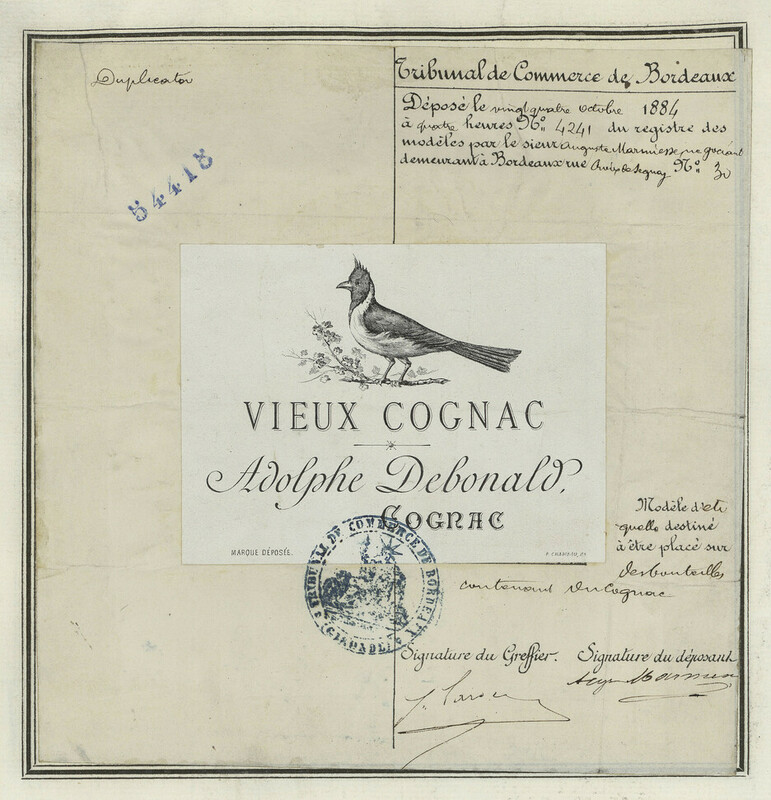 Duplicata
Tribunal de Commerce de Bordeaux
Déposé le vingt quatre octobre 1884
à quatre heures No. 4241 du registre des
modèles par le sieur Auguste négociant
demeurant à Bordeaux rue Croix de Seguey No. 30
54418
VIEUX COGNAC
Adolphe Debonald,
COGNAC
MARQUE DÉPOSÉE.
TRIBUNAL DE COMMERCE DE BORDEAUX
(GIRONDE)
Modèle d'eti
quette destiné
à être placé sur
des bouteilles
contenant du Cognac
Signature du Greffier. Signature du déposant